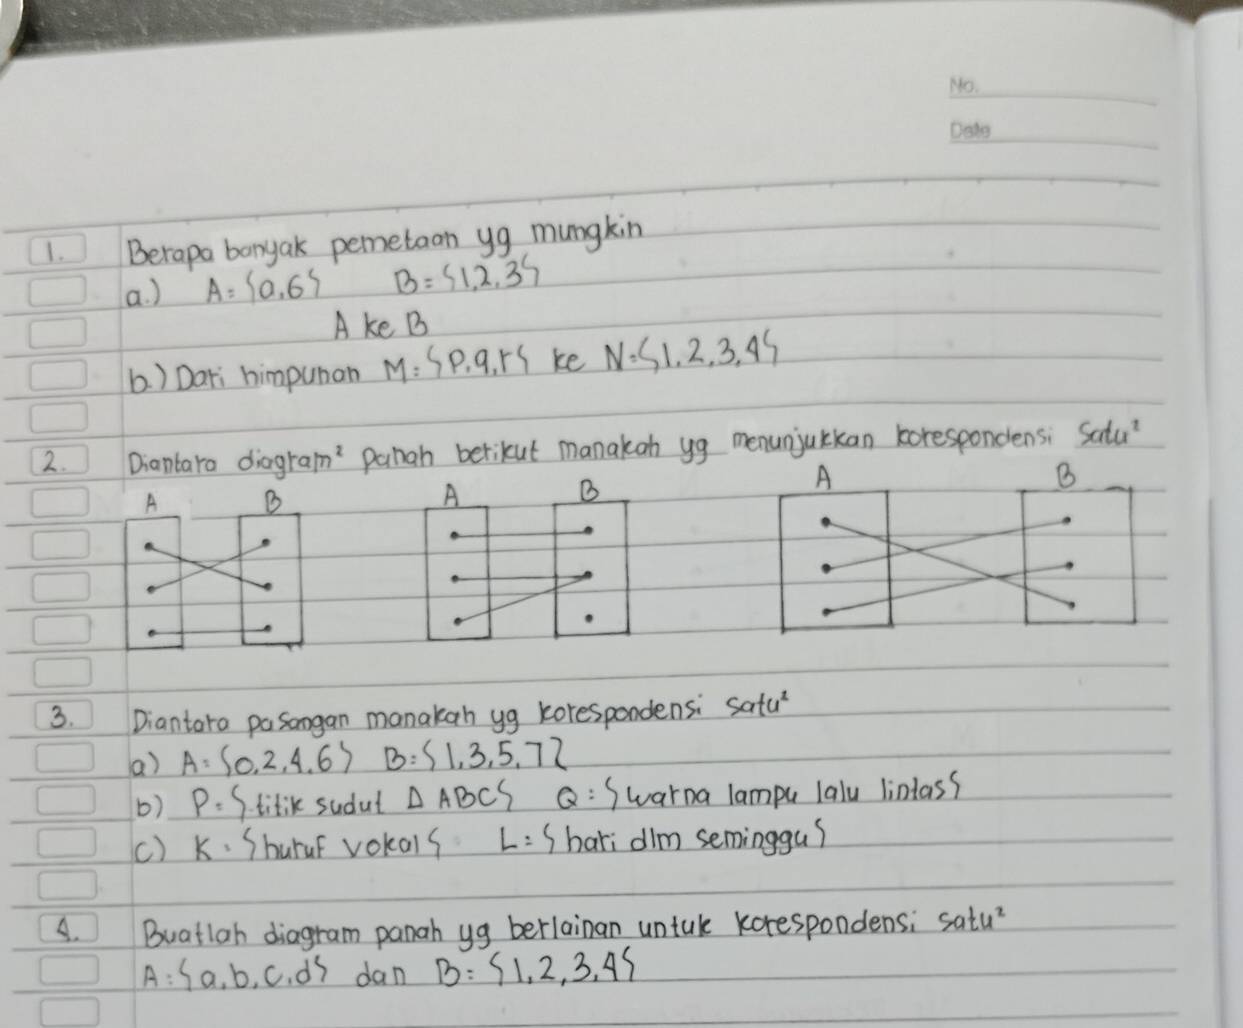 No.
Date
1. Berapa banyak pemetaan yg mungkin
a.) A = {a,b} B = {1,2,3}
A ke B
b.) Dari himpunan M = {p,q,r} ke N = {1,2,3,4}
2. Diantara diagram² panah berikut manakah yg menunjukkan korespondensi satu²
A B A B A B
3. Diantara pasangan manakah yg korespondensi satu²
a) A = {0,2,4,6} B = {1,3,5,7}
b) P = {titik sudut Δ ABC} Q = {warna lampu lalu lintas}
c) K = {huruf vokal} L = {hari dlm seminggu}
4. Buatlah diagram panah yg berlainan untuk korespondensi satu²
A = {a,b,c,d} dan B = {1,2,3,4}